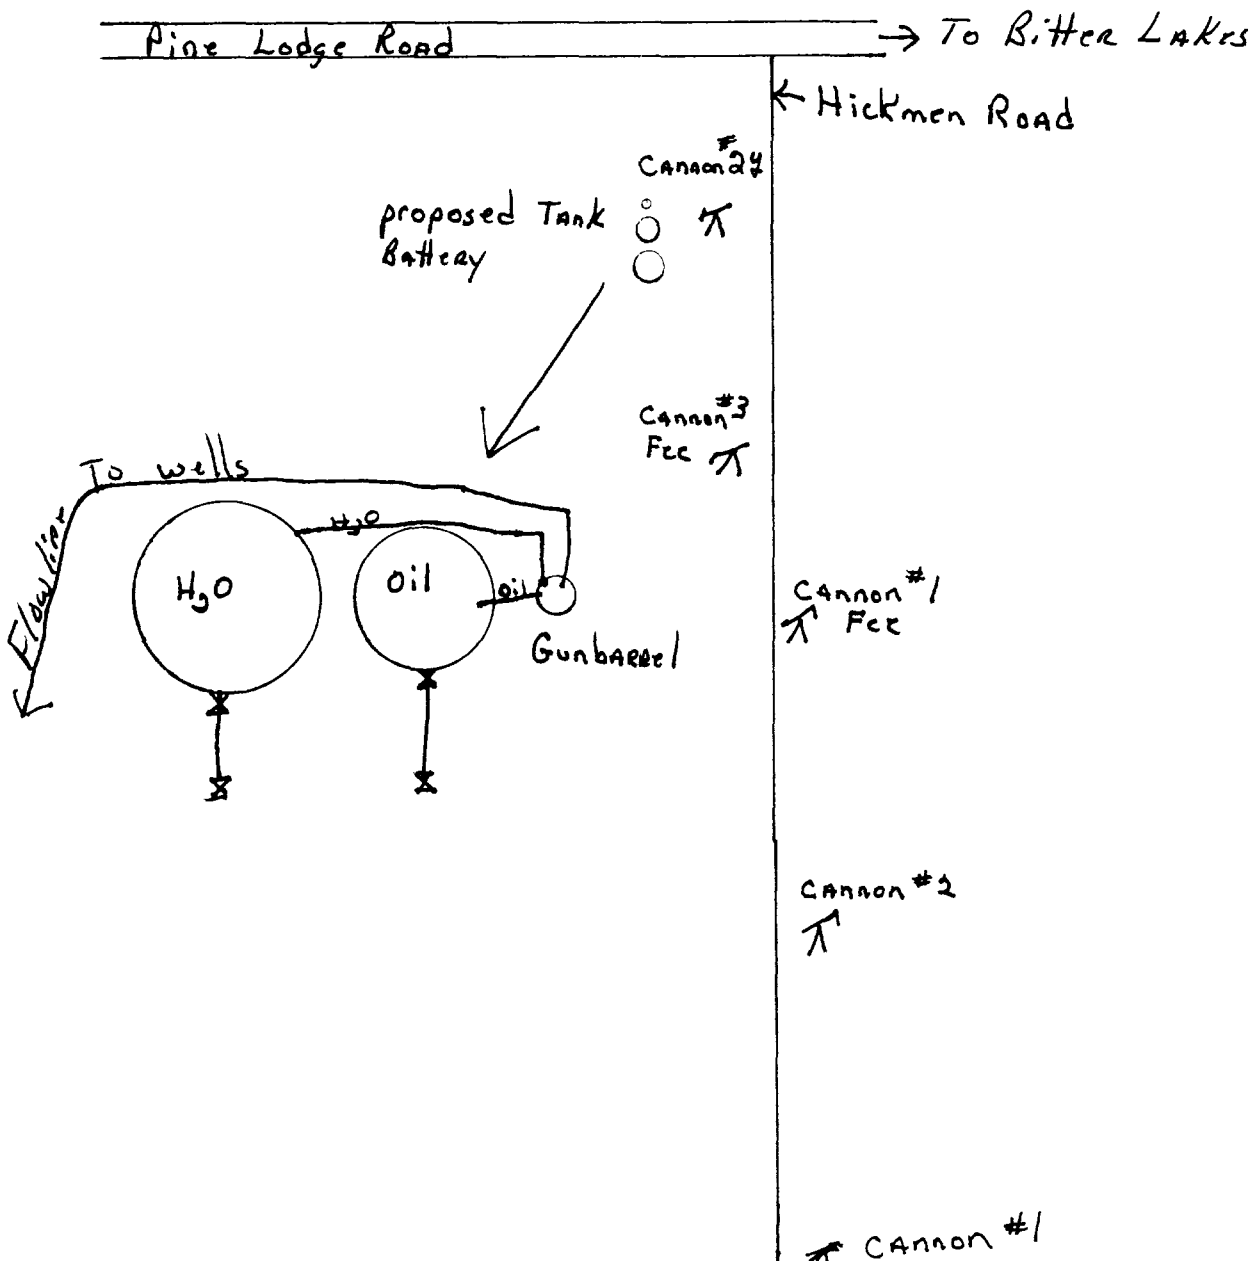 Pine Lodge Road
To Bitter Lakes
Hickmen Road
Cannon #2y
proposed Tank
Battery
Cannon #3
Fee
To wells
Flowline
H2O
H2O
Oil
Oil
Gunbarrel
Cannon #1
Fee
Cannon #2
Cannon #1